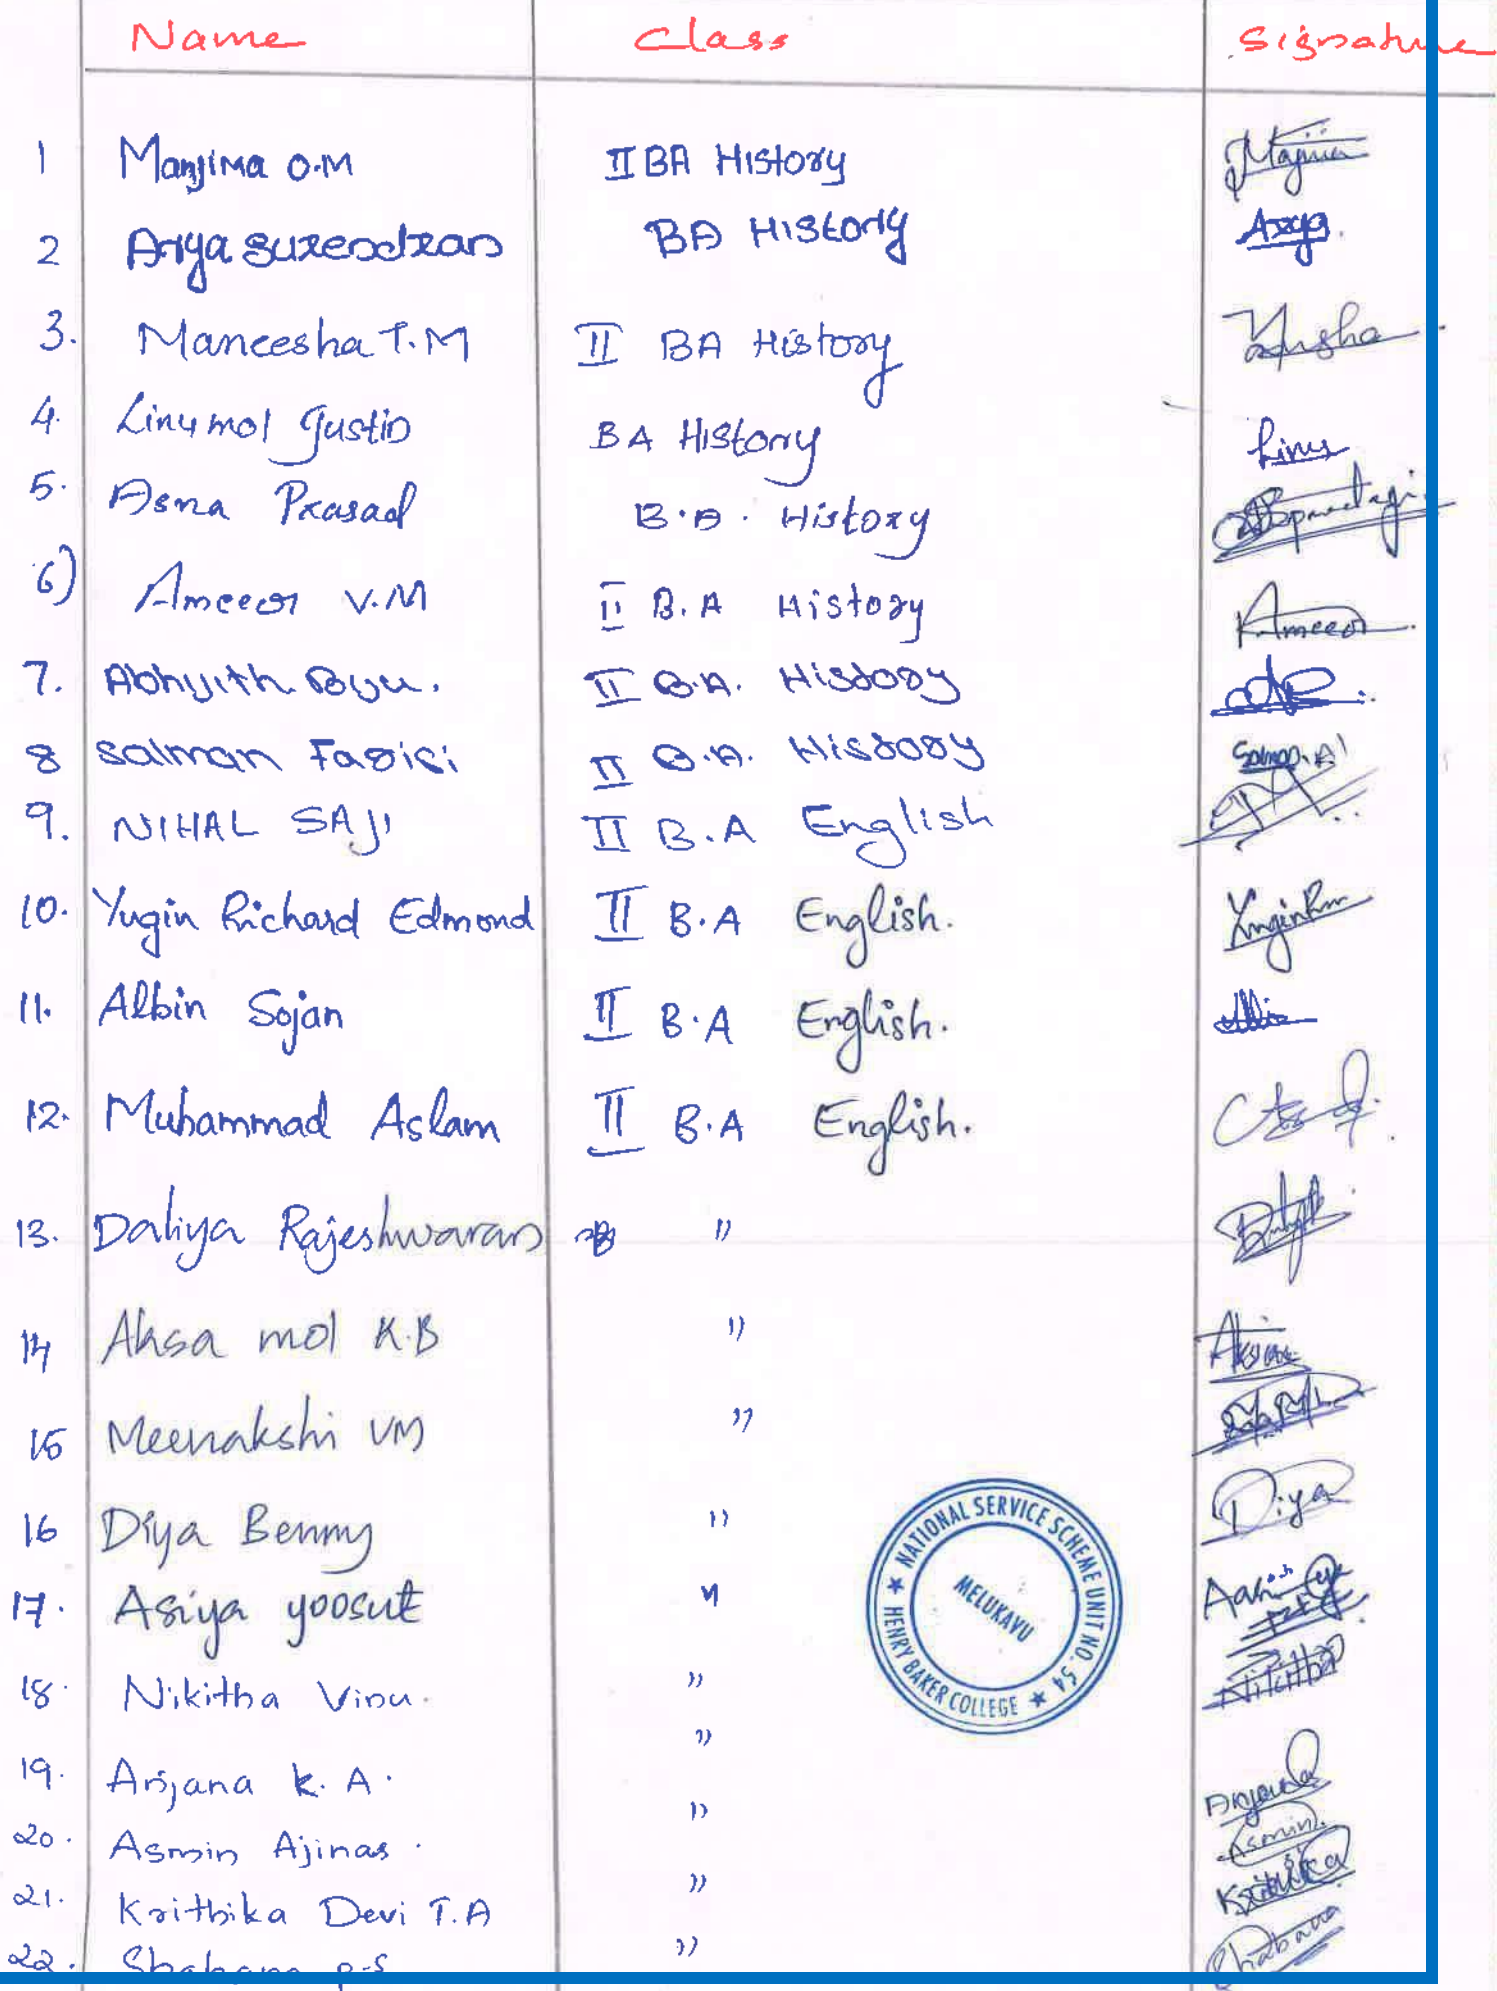 Name Class Signature
1 Manjima O.M II BA History
2 Arya Surendran BA History Arya.
3. Maneesha T.M II BA History
4. Linumol Justin BA History Linu
5. Asna Prasad B.A. History
6) Ameer V.M II B.A History Ameer.
7. Abhijith Biju. II B.A. History
8 Salman Farisi II B.A. History Salman.Al
9. NIHAL SAJI II B.A English
10. Yugin Richard Edmond II B.A English.
11. Albin Sojan II B.A English.
12. Muhammad Aslam II B.A English.
13. Daliya Rajeshwaran "
14 Aksa mol K.B "
15 Meenakshi VM "
16 Diya Benny " Diya
17. Asiya yoosuf "
18. Nikitha Vinu. " Nikitha
19. Anjana K. A. " Anjana
20. Asmin Ajinas. " Asmin.
21. Krithika Devi T.A " Krithika
22. Shahana P.S " Shahana
NATIONAL SERVICE SCHEME UNIT NO. 54
HENRY BAKER COLLEGE
MELUKAVU